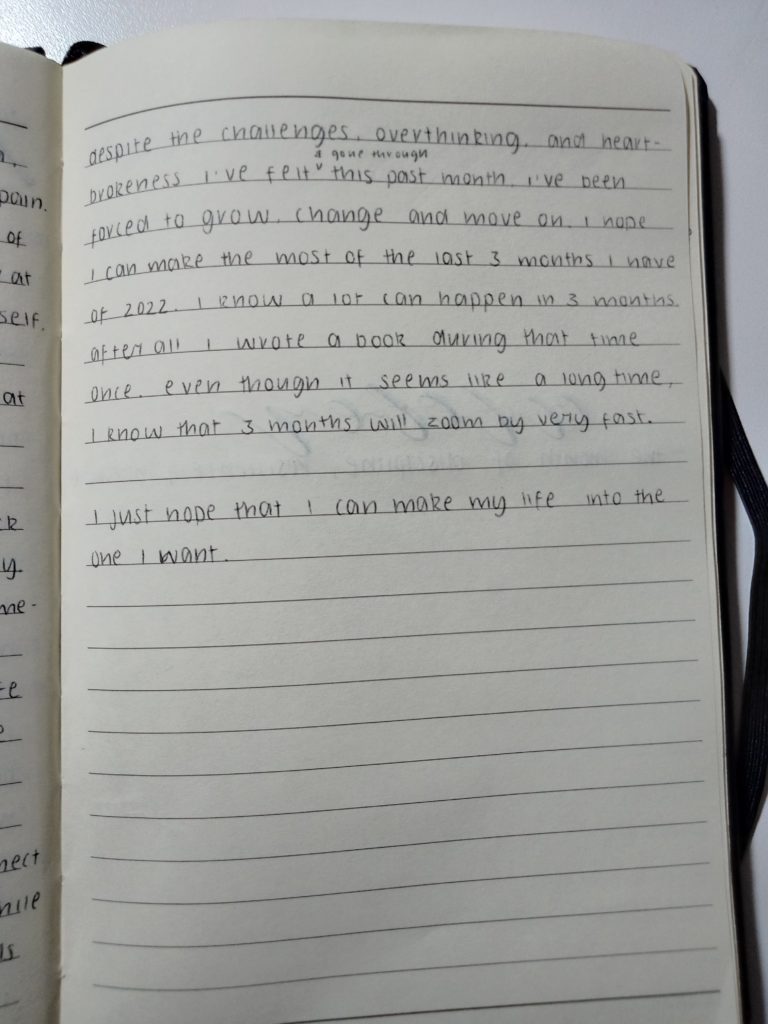 despite the challenges, overthinking, and heart-
& gone through
brokeness i've felt ˅ this past month, i've been
forced to grow, change and move on. i hope
i can make the most of the last 3 months i have
of 2022. i know a lot can happen in 3 months.
after all i wrote a book during that time
once. even though it seems like a long time,
i know that 3 months will zoom by very fast.
i just hope that i can make my life into the
one i want.
pain.
of
at
self.
at
y
me-
nect
is